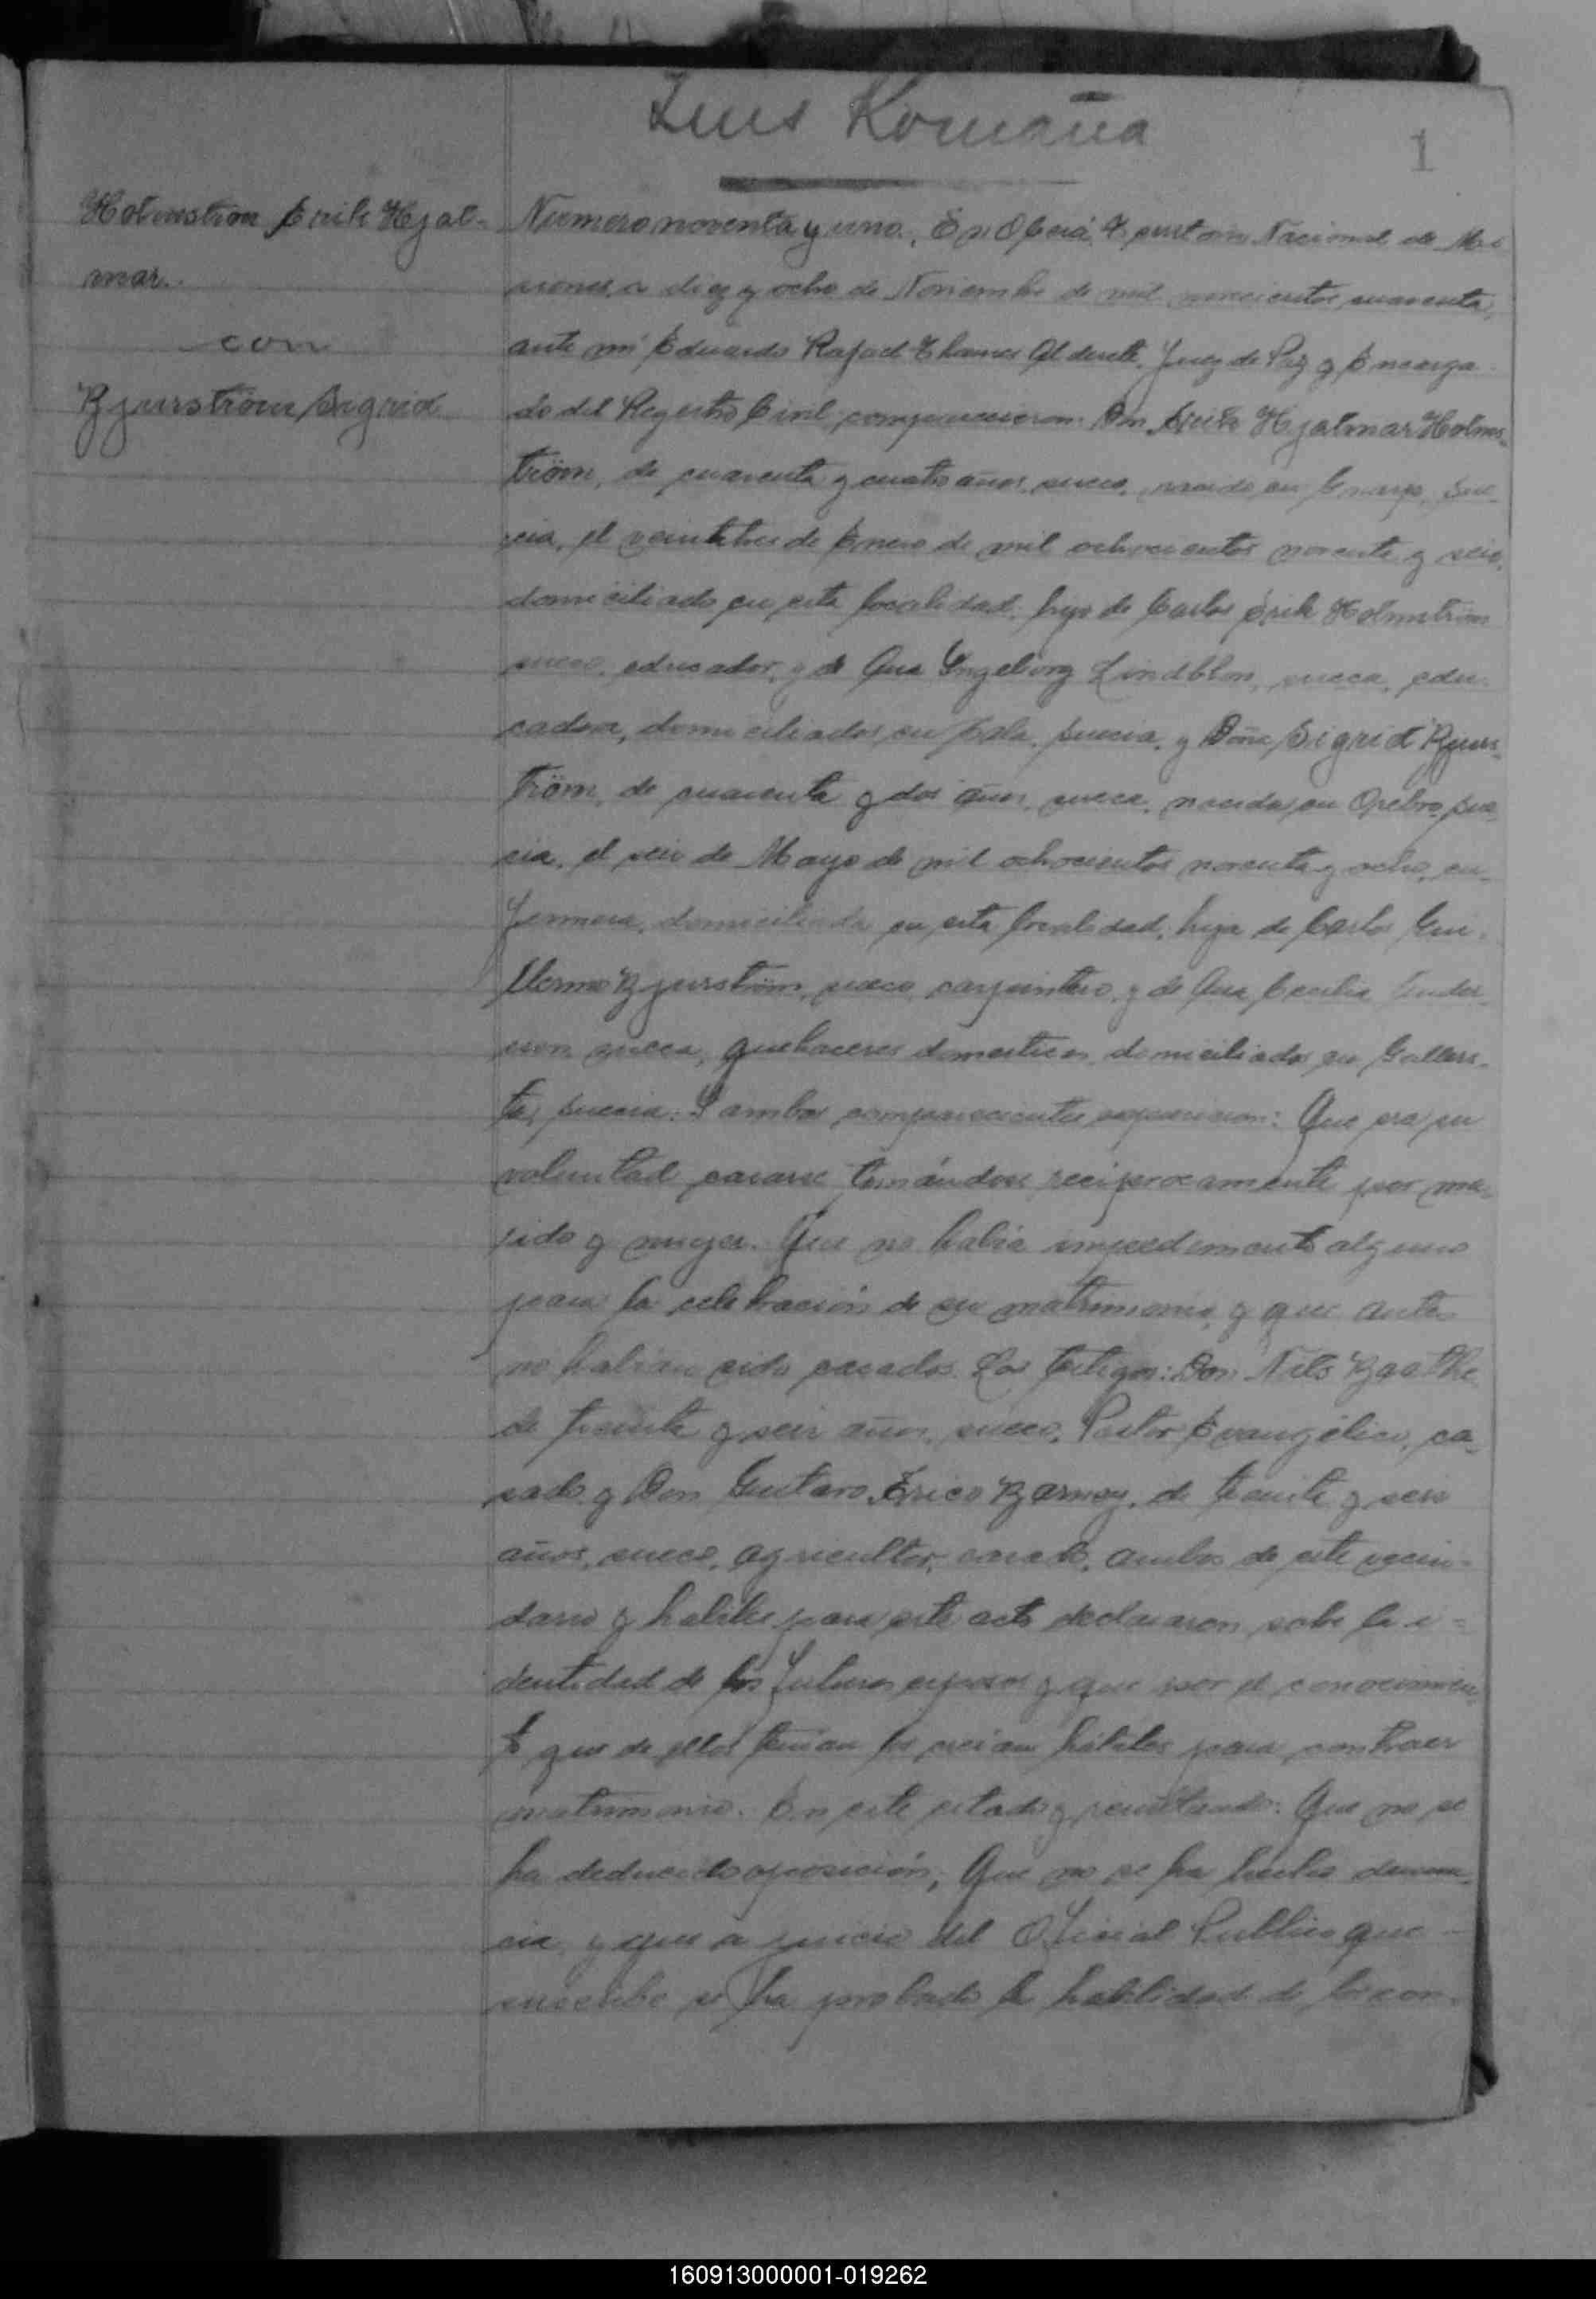 Luis Romaña
1
Holmström Erik Hjal-
mar.
con
Bjurström Sigrid
Numero noventa y uno. En Oberá, Territorio Nacional de Mi
siones, a diez y ocho de Noviembre de mil novecientos cuarenta,
ante mi Eduardo Rafael Thames Alderete, Juez de Paz y Encarga
do del Registro Civil, comparecieron: Don Erik Hjalmar Holms-
tröm, de cuarenta y cuatro años, sueco, nacido en Sue-
cia, el veintitres de Enero de mil ochocientos noventa y seis,
domiciliado en esta localidad, hijo de Carlos Erik Holmström
sueco, educador, y de Ana Yngeborg Lindblon, sueca, edu-
cadora, domiciliados en Sala, Suecia, y Doña Sigrid Bjurs-
tröm, de cuarenta y dos años, sueca, nacida en Orebro, Sue-
cia, el seis de Mayo de mil ochocientos noventa y ocho, en-
fermera, domiciliada en esta localidad, hija de Carlos Gui-
llermo Bjurström, sueco, carpintero, y de Ana Cecilia Ander-
son, sueca, quehaceres domesticos, domiciliados en Gallers-
ta, Suecia. Y ambos comparecientes expusieron: Que era su
voluntad casarse tomándose reciprocamente por ma-
rido y mujer. Que no habia impedimento alguno
para la celebración de su matrimonio, y que antes
no habian sido casados. Los testigos: Don Nils Baathe,
de treinta y seis años, sueco, Pastor Evangélico, ca-
sado y Don Gustavo Erico Barney, de treinta y seis
años, sueco, agricultor, casado, ambos de este vecin-
dario y habiles para este acto declararon sobre la i-
dentidad de los futuros esposos y que por el conocimien-
to que de ellos tenian los creian hábiles para contraer
matrimonio. En este estado y resultando: Que no se
ha deducido oposición, Que no se ha hecho denun-
cia y que a juicio del Oficial Publico que
suscribe se ha probado la habilidad de los con-
160913000001-019262